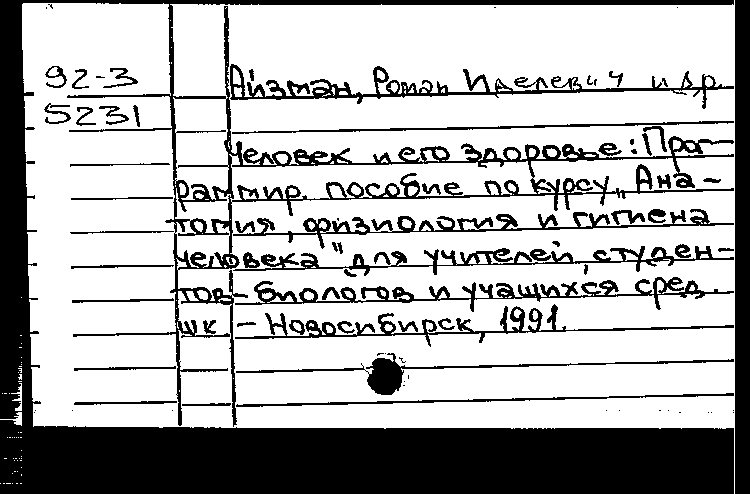 92-3 Айзман, Роман Иделевич и др.
5231
Человек и его здоровье: Прог-
раммир. пособие по курсу „Ана-
томия, физиология и гигиена
человека" для учителей, студен-
тов-биологов и учащихся сред.
шк - Новосибирск, 1991.